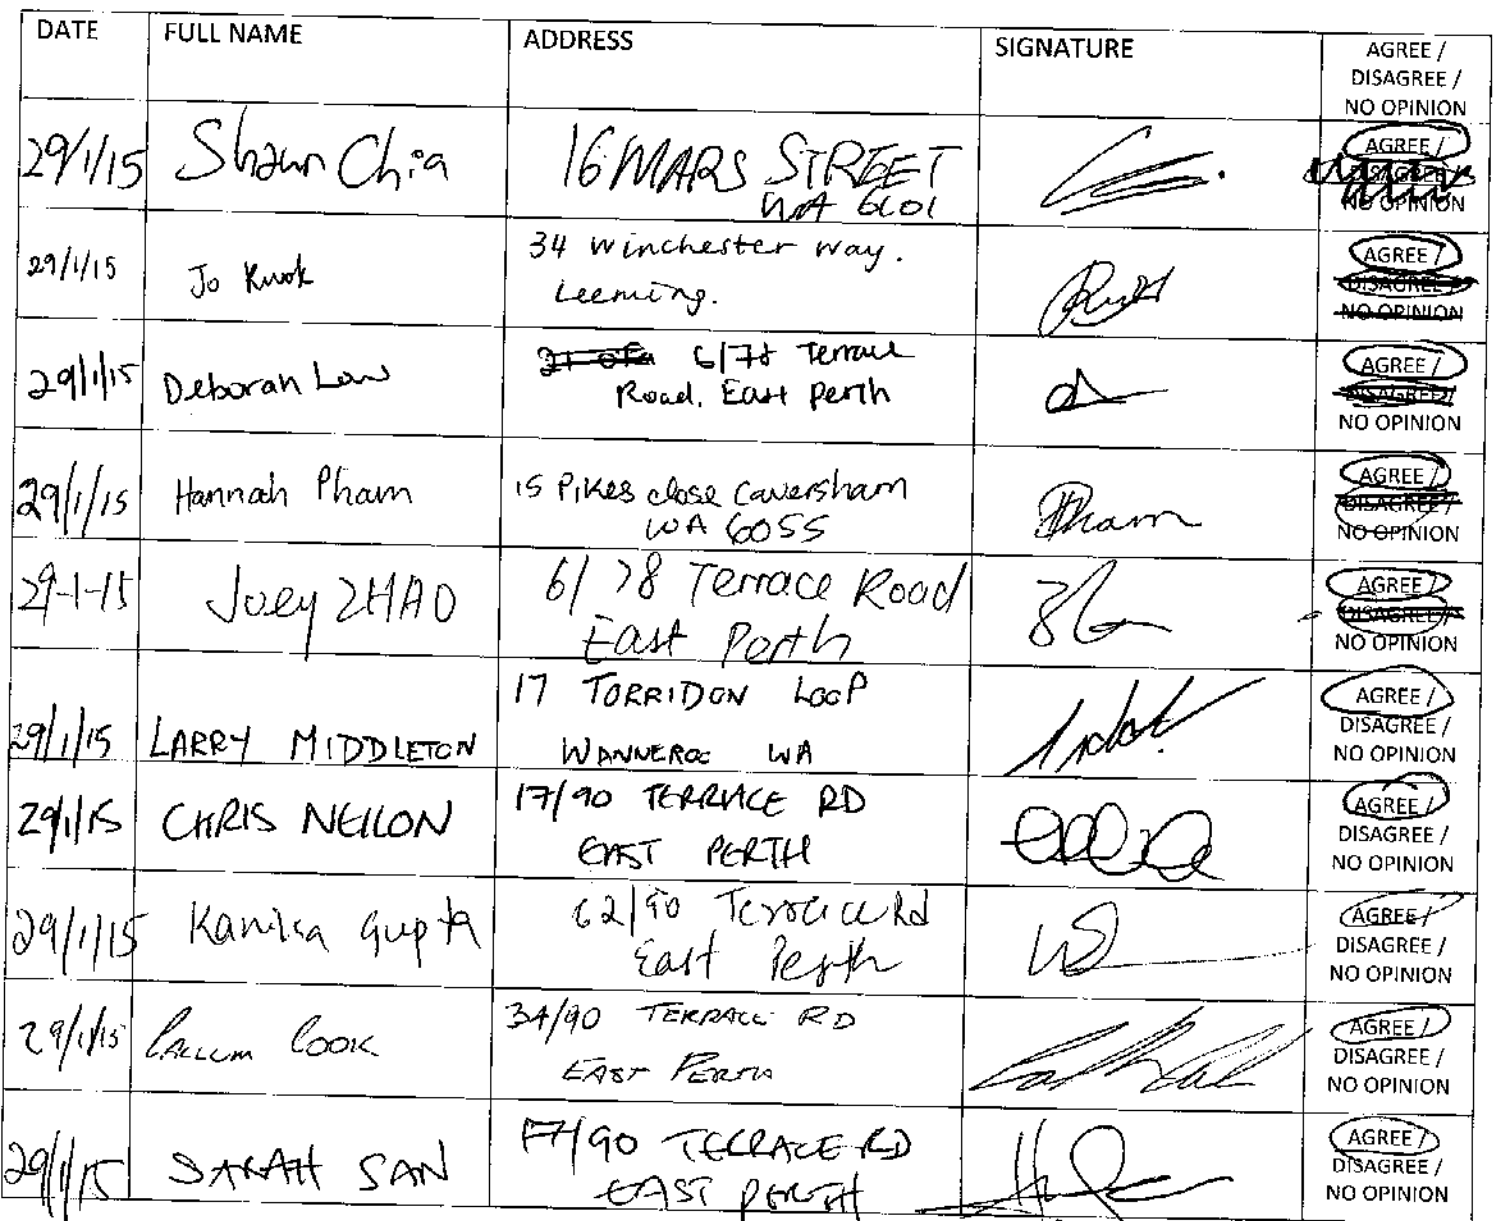 DATE FULL NAME ADDRESS SIGNATURE AGREE /
DISAGREE /
NO OPINION
29/1/15 Shaun Chia 16 MARS STREET AGREE /
WA 6101 DISAGREE /
NO OPINION
29/1/15 Jo Kwok 34 Winchester Way. AGREE /
Leeming. DISAGREE /
NO OPINION
29/1/15 Deborah Law 6/78 Terrace AGREE /
Road, East Perth DISAGREE /
NO OPINION
29/1/15 Hannah Pham 15 Pikes close Caversham AGREE /
WA 6055 Pham DISAGREE /
NO OPINION
29-1-15 Joey ZHAO 6/78 Terrace Road AGREE /
East Perth DISAGREE /
NO OPINION
29/1/15 LARRY MIDDLETON 17 TORRIDON LOOP AGREE /
WANNEROO WA DISAGREE /
NO OPINION
29/1/15 CHRIS NEILON 17/90 TERRACE RD AGREE /
EAST PERTH DISAGREE /
NO OPINION
29/1/15 Kanika Gupta 62/90 Terrace Rd AGREE /
East Perth DISAGREE /
NO OPINION
29/1/15 Callum Cook 34/90 TERRACE RD AGREE /
EAST PERTH DISAGREE /
NO OPINION
29/1/15 SARAH SAN 17/90 TERRACE RD AGREE /
EAST PERTH DISAGREE /
NO OPINION